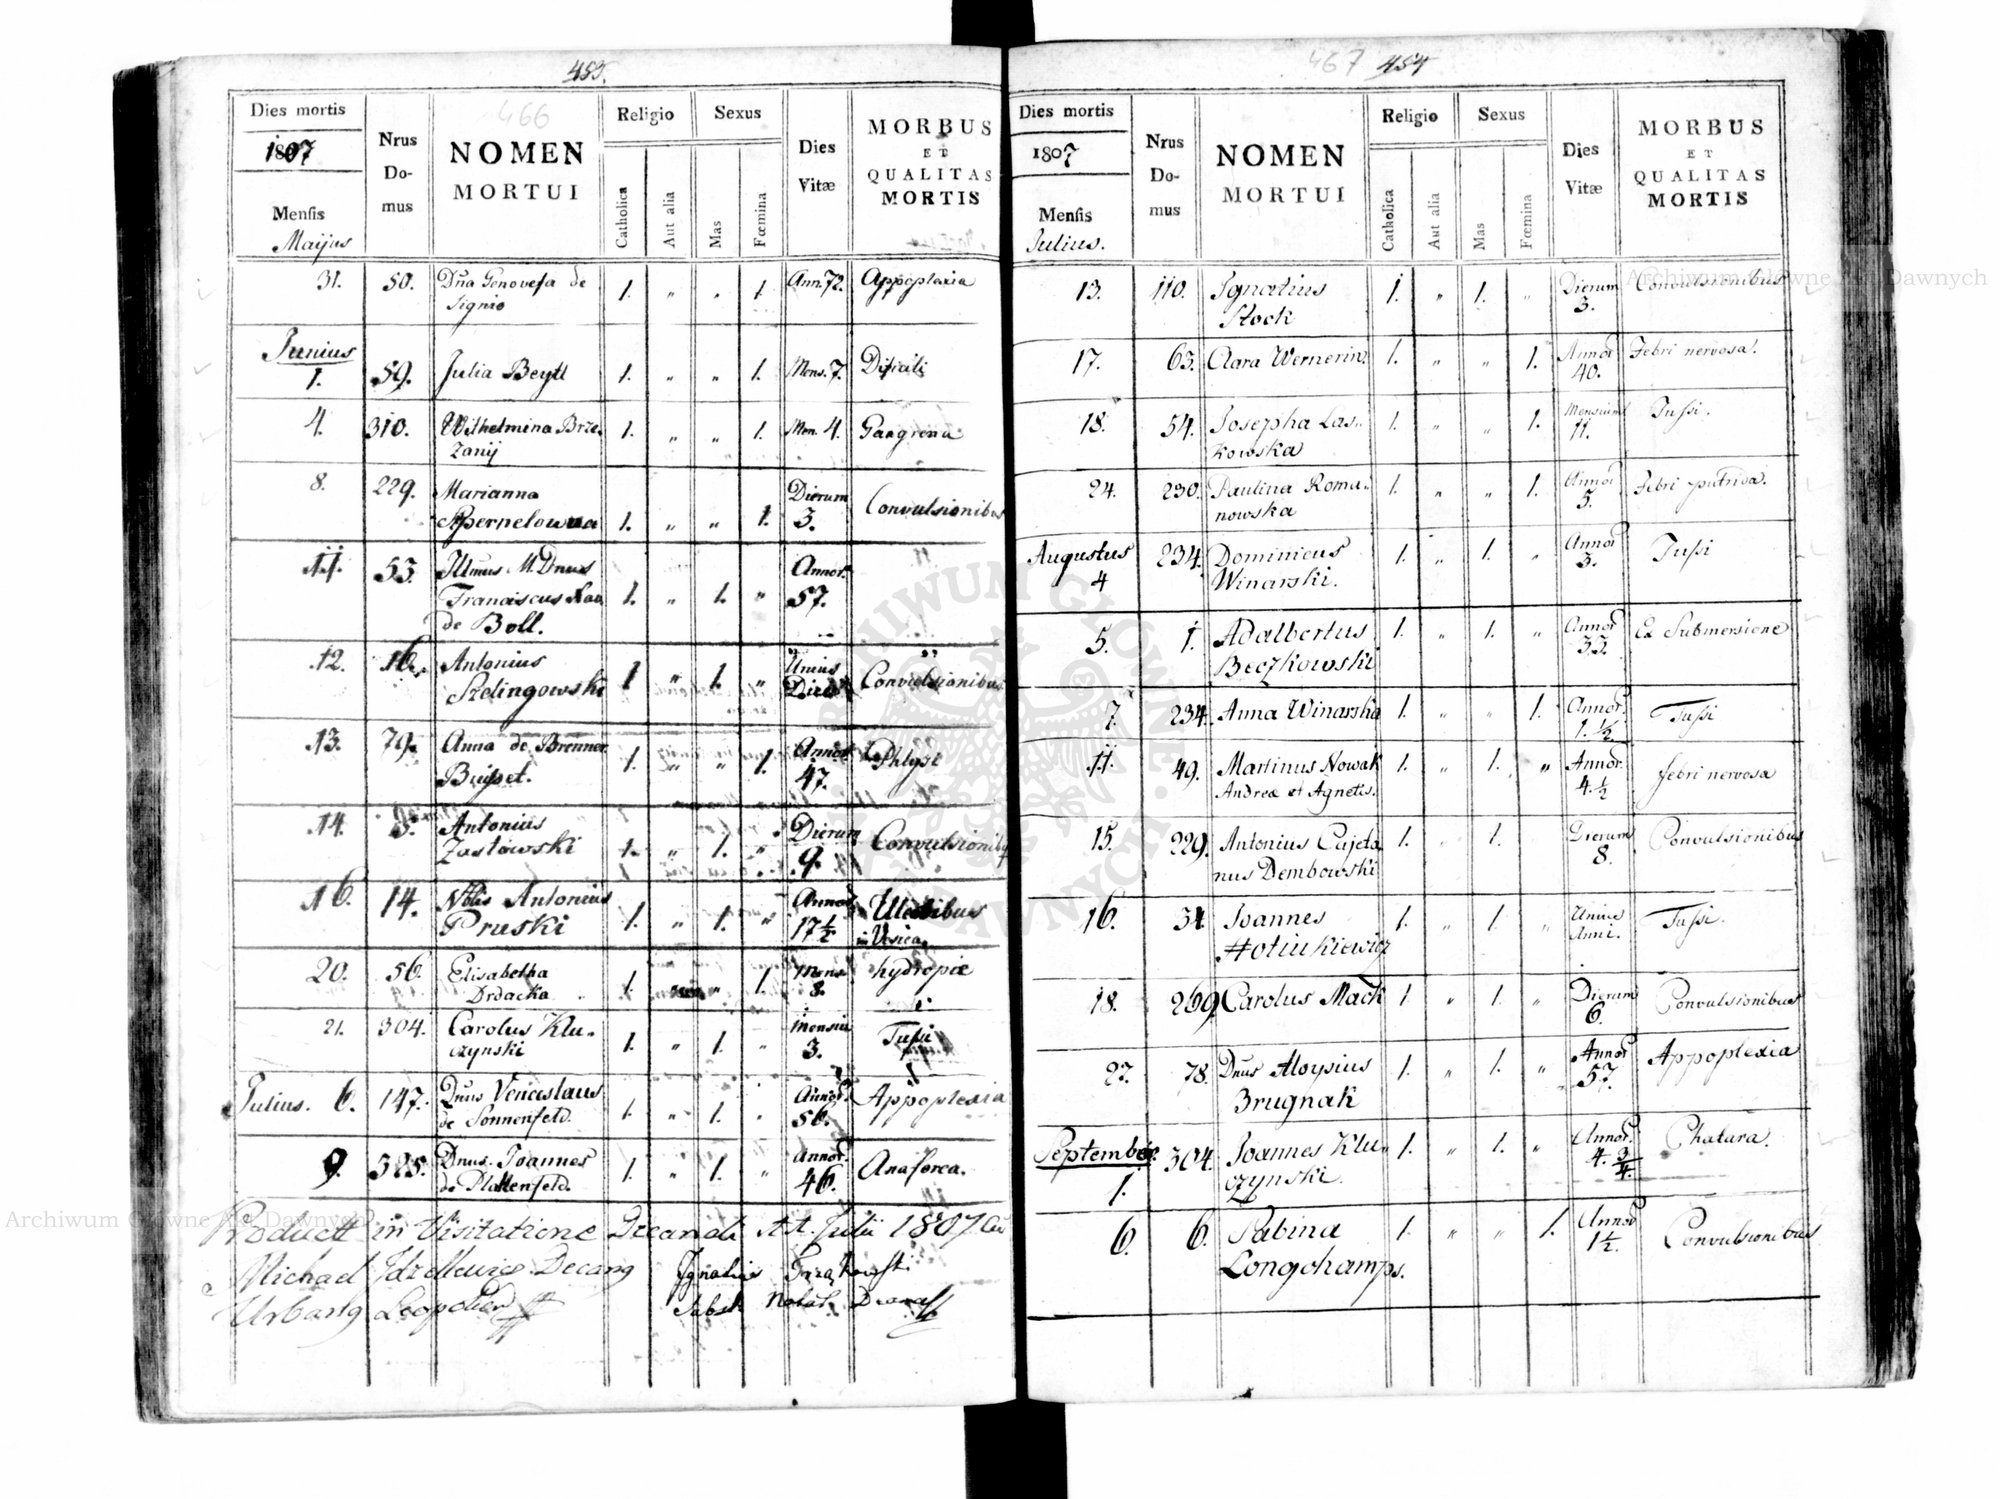 453.
466
Dies mortis
1807
Mensis
Maijus
Nrus
Do-
mus
NOMEN
MORTUI
Religio
Catholica
Aut alia
Sexus
Mas
Fœmina
Dies
Vitæ
MORBUS
ET
QUALITAS
MORTIS
31. 50. Dna Genovefa de 1. " " 1. Ann. 72. Appoplexia
Signio
Junius
1. 59. Julia Beytl 1. " " 1. Mens. 7.
4. 310. Wilhelmina Brze- 1. " " 1. Men. 4. Gangrena
zanij
8. 229. Marianna Dierum
1. " " 1. 3. Convulsionibus
11. 53. Illmus M. Dnus Annor.
Franciscus 1. " 1. " 57.
de Boll.
12. 16. Antonius Unius
Szelingowski 1 " 1. " Diei Convulsionibus
13. 79. Anna de Brenner 1. " " 1. Annor.
47.
14. Antonius Dierum
Zastowski 1. " 1. " 9. Convulsionibus
16. 14. Nblis Antonius Annor.
Pruski 1. " 1. " 17 1/2 Ulceribus
in Vesica
20. 56. Elisabetha 1. " 1. Mens. hydropiæ
Drdacka 8.
21. 304. Carolus Klu- 1. " 1. " Mensiu Tussi
czynski 3.
Julius. 6. 147. Dnus Venceslaus 1. " 1. " Annor. Appoplexia
de Sonnenfeld. 56.
9. 325. Dnus Joannes 1. " 1. " Annor. Anasorca.
de Plattenfeld. 46.
Product in Visitatione Decanali Julii 1807
Michael Decang
Ignatius
Urbang Leopolien
467 454
Dies mortis
1807
Mensis
Julius.
Nrus
Do-
mus
NOMEN
MORTUI
Religio
Catholica
Aut alia
Sexus
Mas
Fœmina
Dies
Vitæ
MORBUS
ET
QUALITAS
MORTIS
13. 110. Ignatius 1. " 1. " Dierum Convulsionibus
Stock 3.
17. 63. Clara Wernerin. 1. " " 1. Annor Febri nervosa.
40.
18. 54. Josepha Las- 1. " " 1. Mensium Tussi.
kowska 11.
24. 230. Paulina Roma- 1. " " 1. Annor Febri putrida.
nowska 5.
Augustus 234. Dominicus 1. " 1. " Annor Tussi
4 Winarski. 3.
5. 1. Adalbertus 1. " 1. " Annor Ex Submersione
Beczkowski 33.
7. 234. Anna Winarska 1. " " 1. Annor. Tussi
1. 1/2
11. 49. Martinus Nowak 1. " 1. " Annor. febri nervosa
Andreæ et Agnetis. 4. 1/2
15. 229. Antonius Cajeta 1. " 1. Dierum Convulsionibus
nus Dembowski 8.
16. 34. Joannes 1. " 1. " Unius Tussi.
Hotiukiewicz Anni.
18. 269 Carolus Mack 1. " 1. " Dierum Convulsionibus
6.
27. 78. Dnus Aloysius 1. " 1. " Annor Appoplexia
Brugnak 57.
September. 304. Joannes Klu- 1. " 1. " Annor. Chatara.
1. czynski. 4. 3/4
6. 6. Sabina 1. " " 1. Annor Convulsionibus
Longchamps. 1 1/2.
Archiwum Główne Akt Dawnych
Archiwum Główne Akt Dawnych
ARCHIWUM GŁÓWNE AKT DAWNYCH